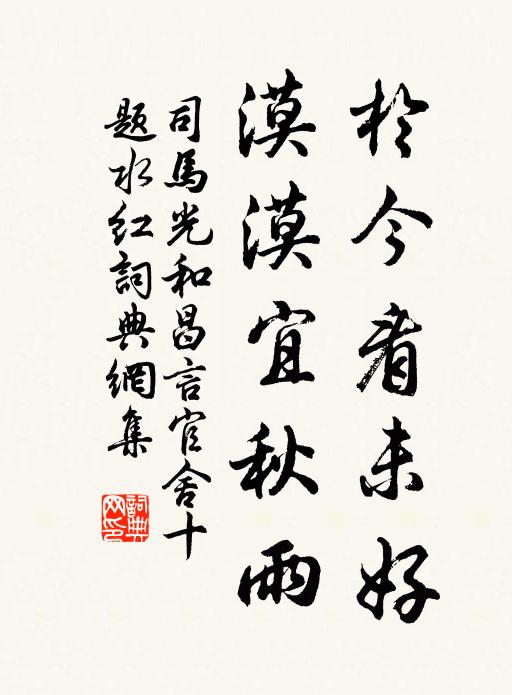 於今看未好
漠漠宜秋雨
司馬光和昌言官舍十
題水紅詞典網集
詞典網印